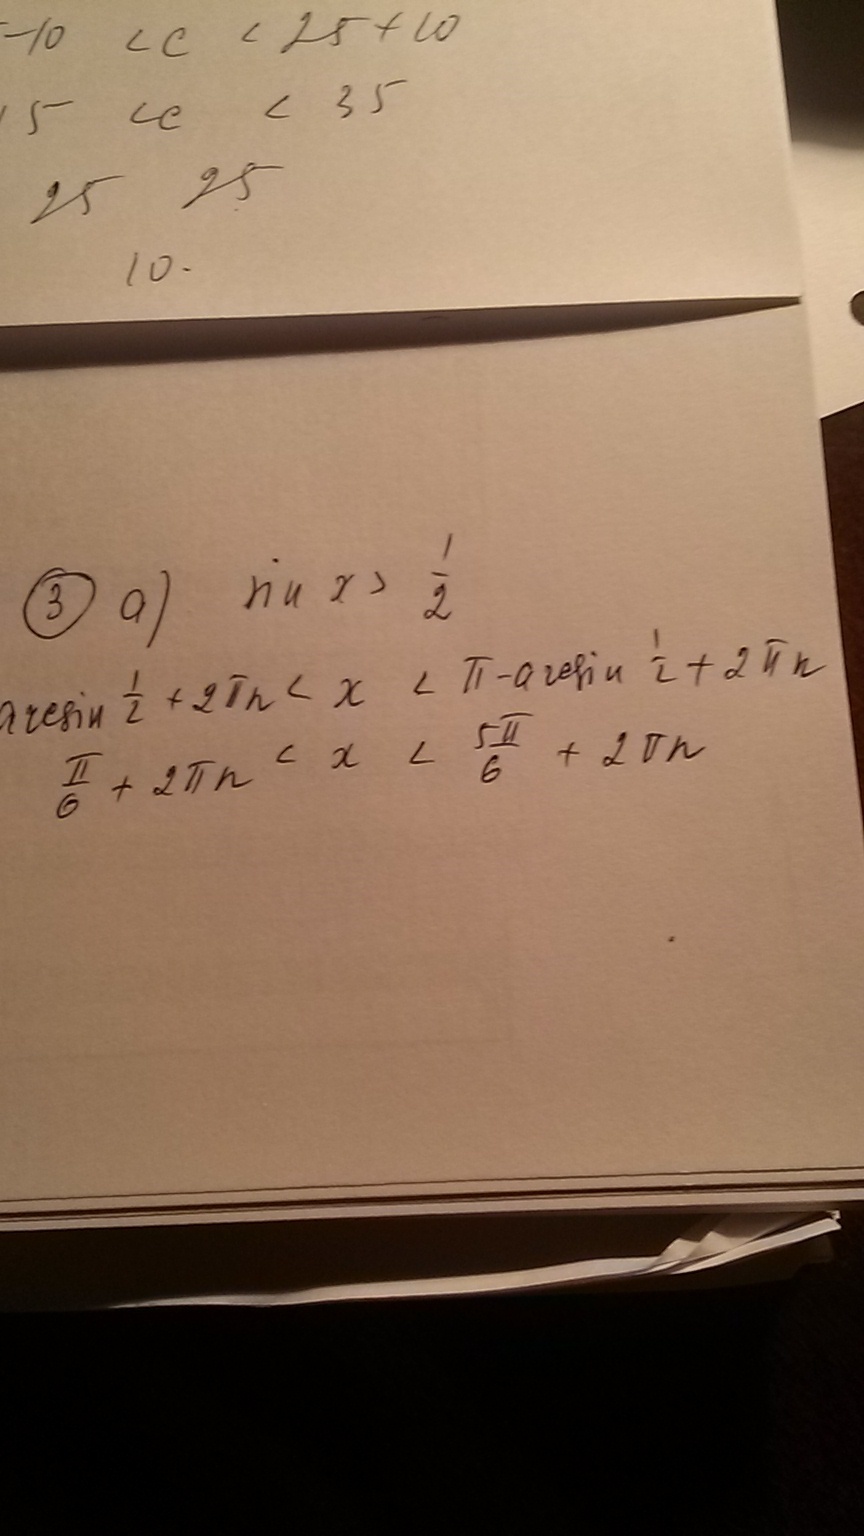 -10 < c < 25 + 10
15 < c < 35
25 25
10.
③ a) sin x > 1/2
arcsin 1/2 + 2πn < x < π - arcsin 1/2 + 2πn
π/6 + 2πn < x < 5π/6 + 2πn